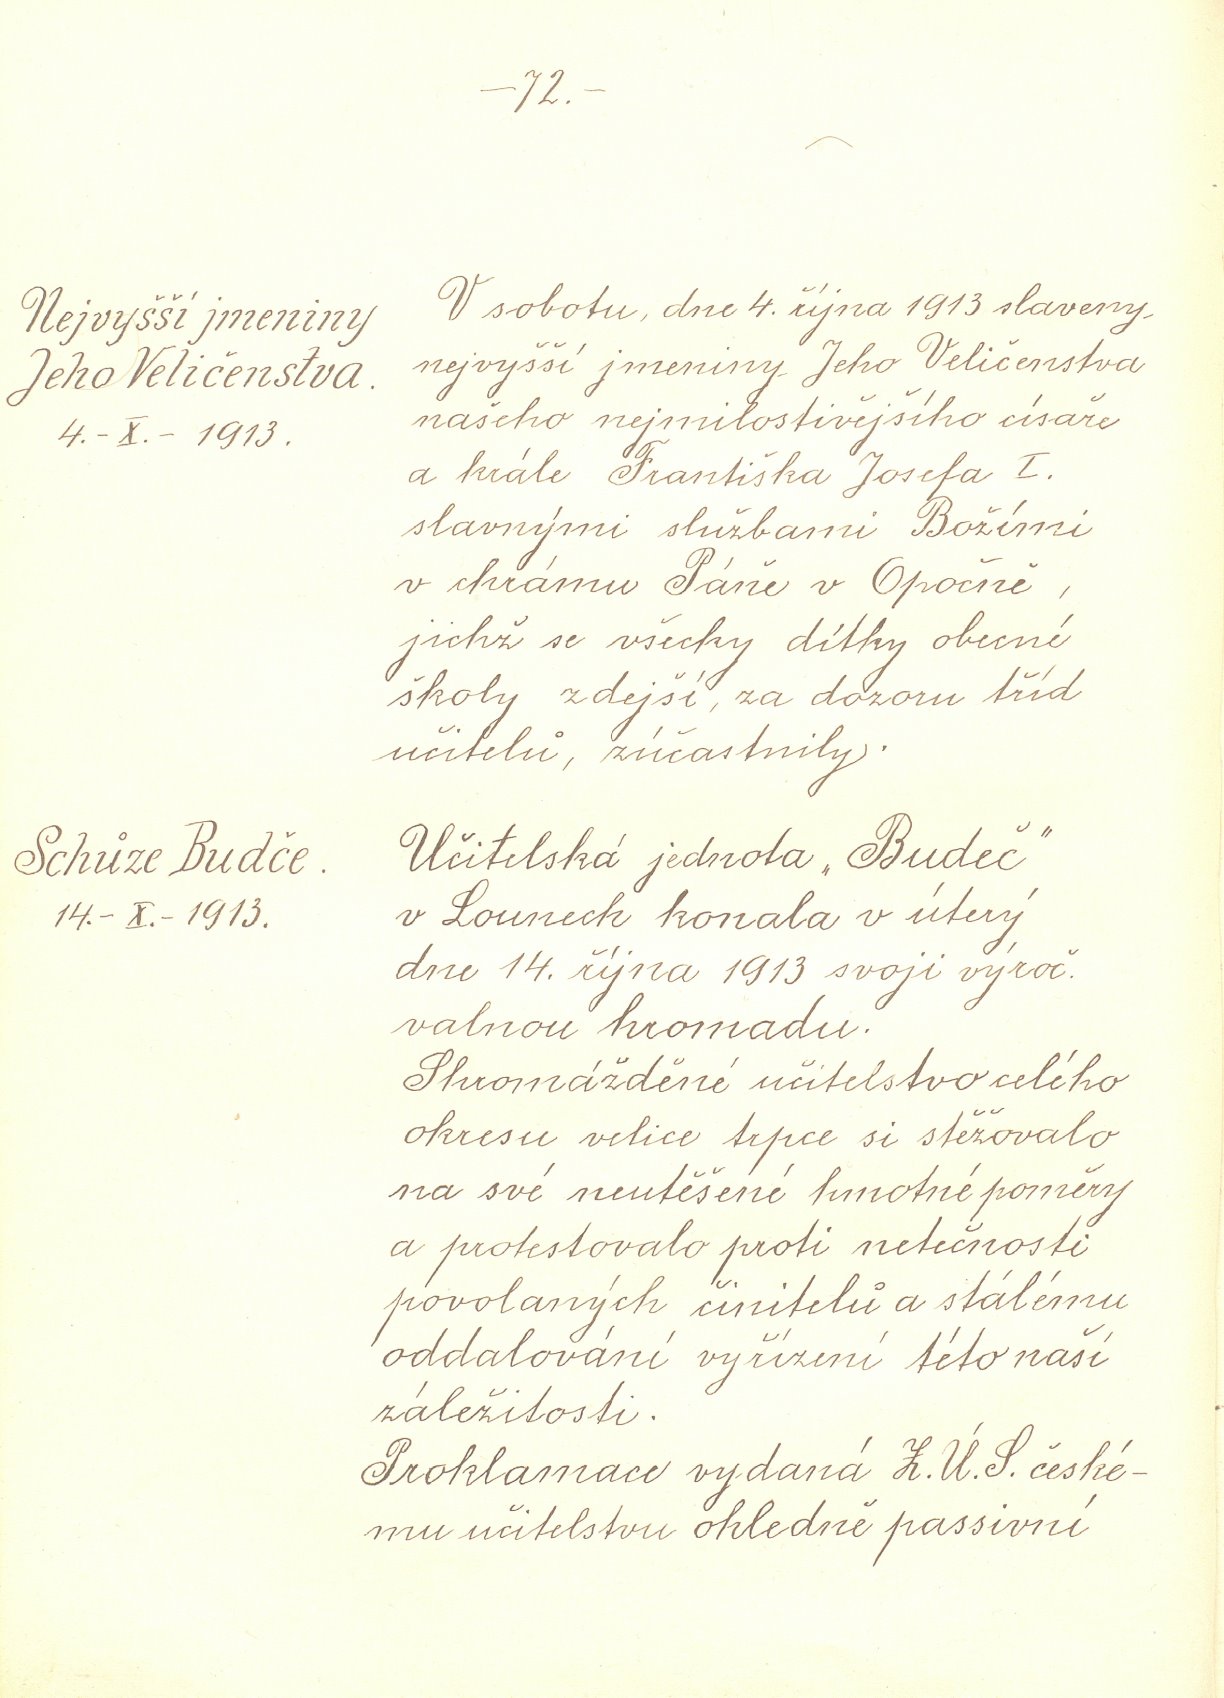 —72.—
Nejvyšší jmeniny
Jeho Veličenstva.
4.-X.- 1913.
V sobotu, dne 4. října 1913 slaveny
nejvyšší jmeniny Jeho Veličenstva
našeho nejmilostivějšího císaře
a krále Františka Josefa I.
slavnými službami Božími
v chrámu Páně v Opočně,
jichž se všecky dítky obecné
školy zdejší, za dozoru tříd
učitelů, zúčastnily.
Schůze Budče.
14.- X.- 1913.
Učitelská jednota „Budeč"
v Lounech konala v úterý
dne 14. října 1913 svoji výroč.
valnou hromadu.
Shromážděné učitelstvo celého
okresu velice trpce si stěžovalo
na své neutěšené hmotné poměry
a protestovalo proti netečnosti
povolaných činitelů a stálému
oddalování vyřízení této naší
záležitosti.
Proklamace vydaná Z.Ú.S. české-
mu učitelstvu ohledně passivní